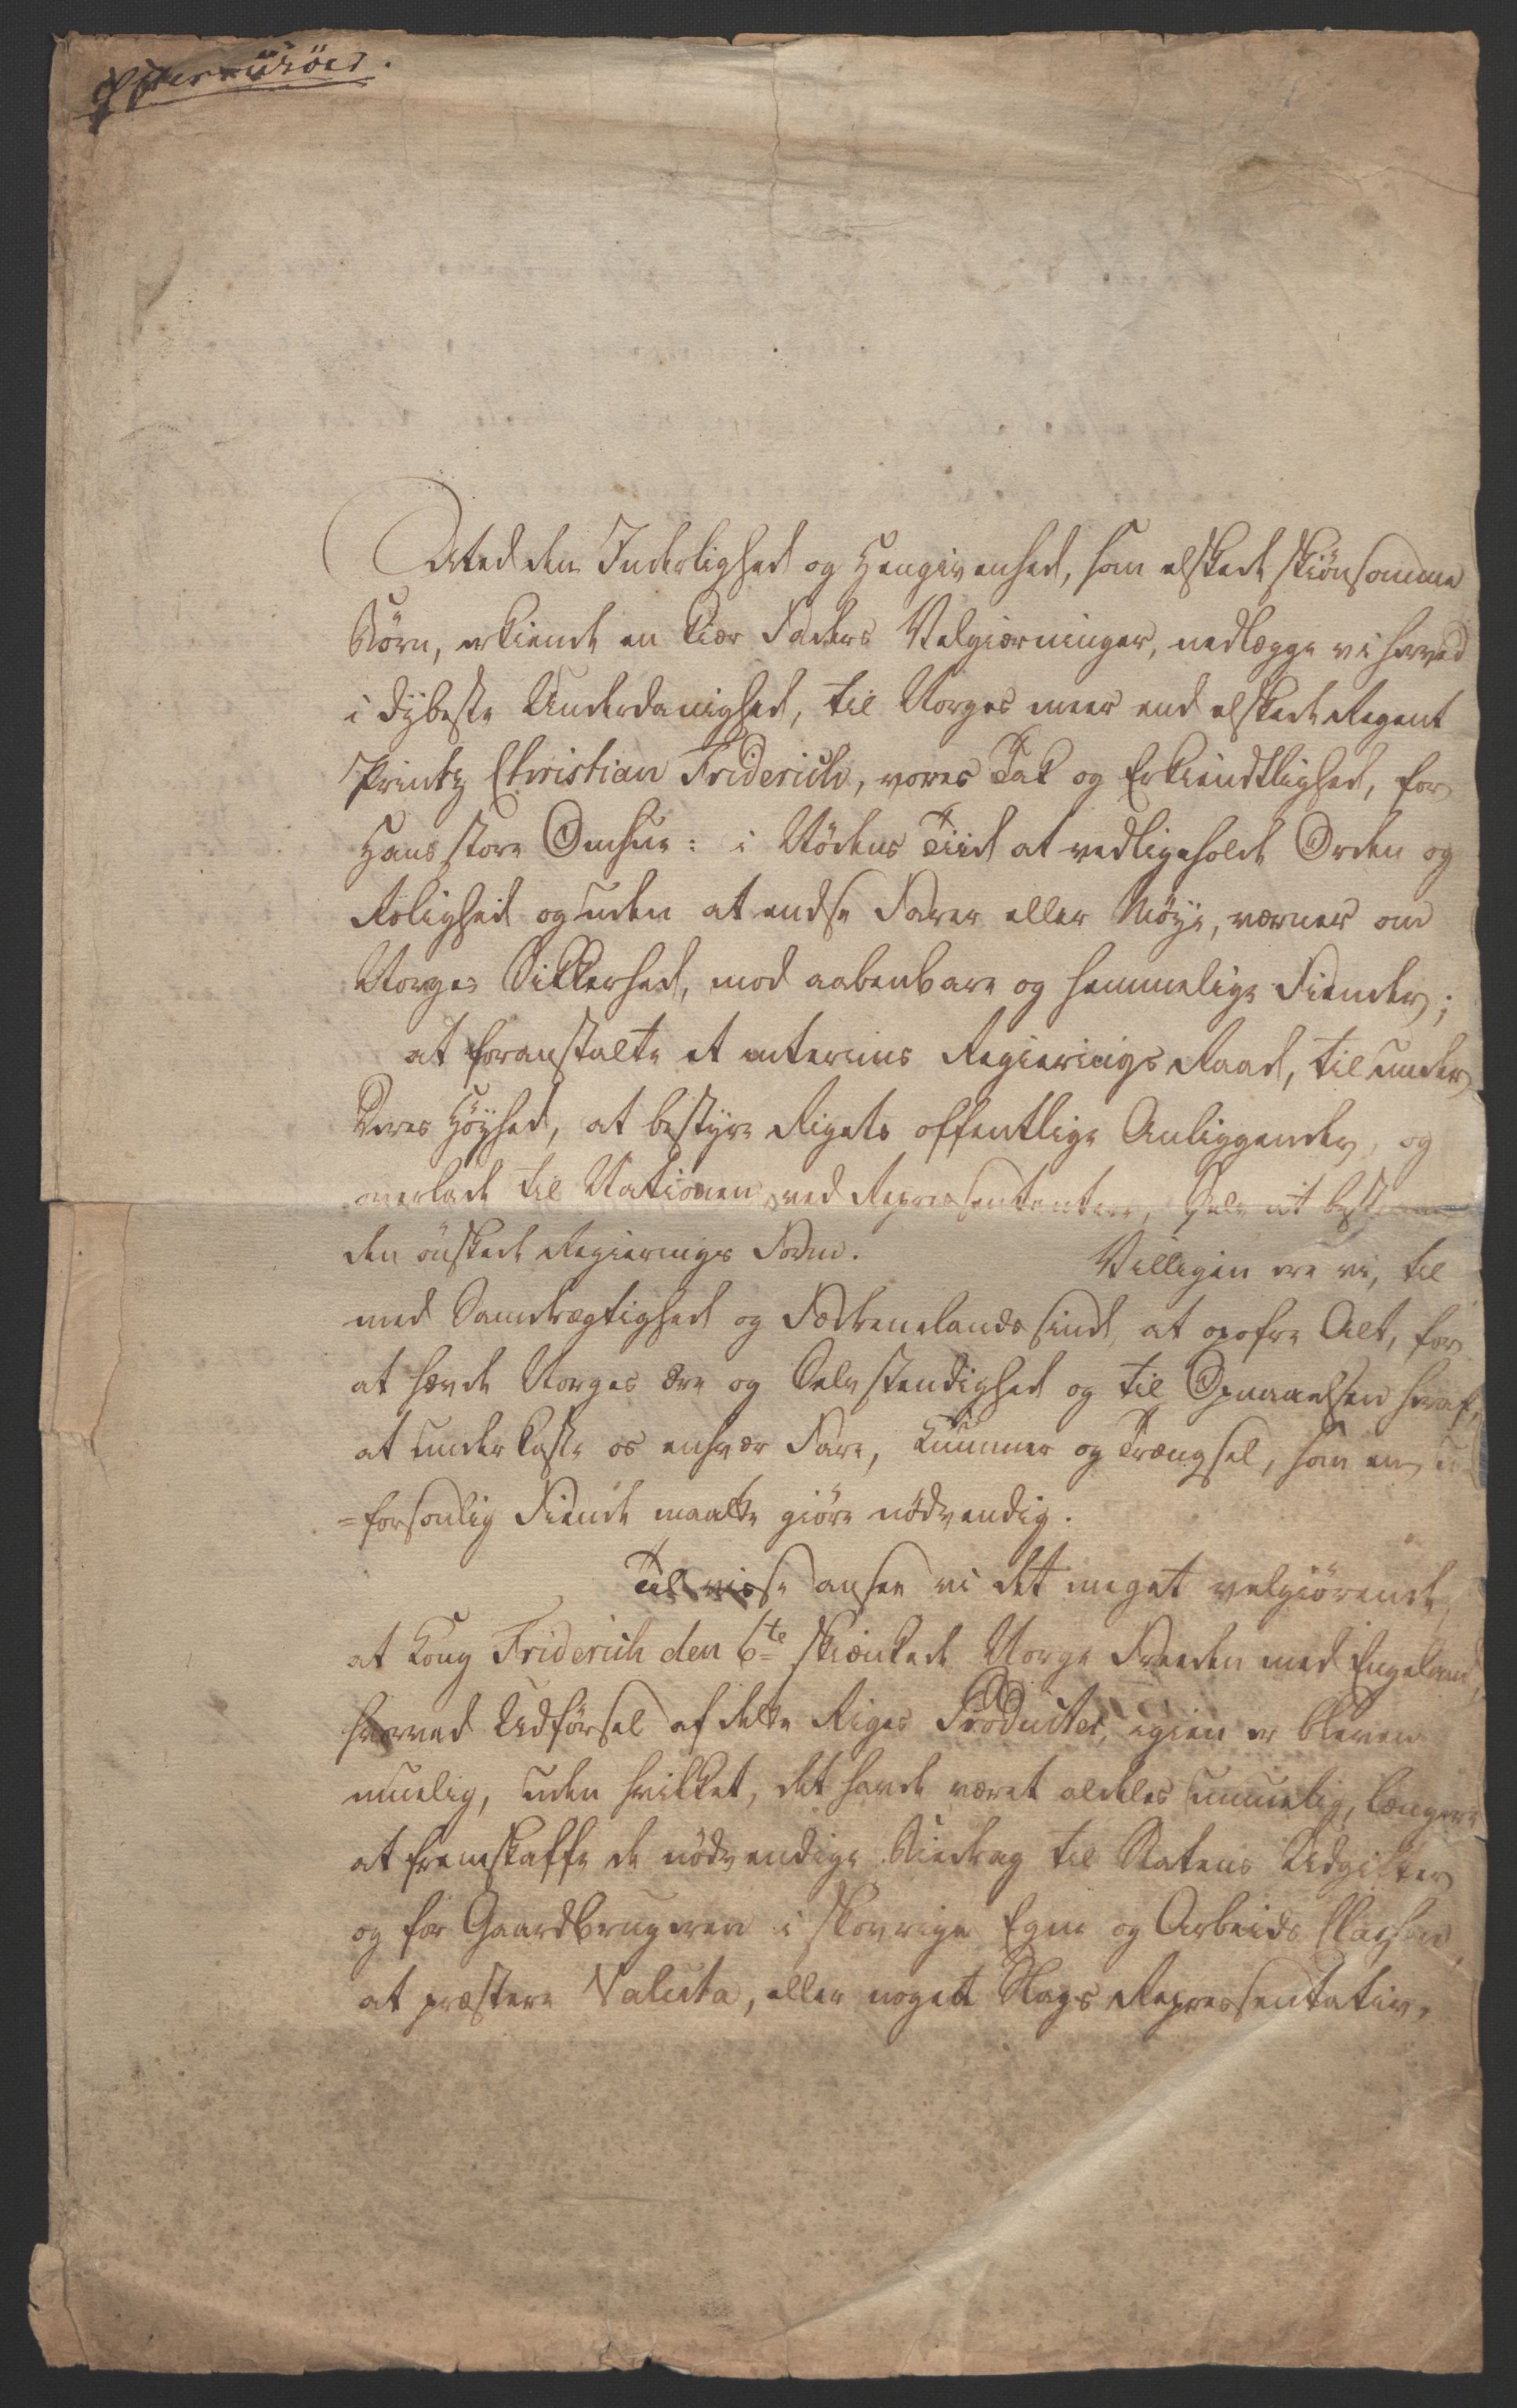 Østerriisöer.
Med den Inderlighed og Hengivenhed, som elskede skiönsomme
Börn, erkiende en kiær Faders Velgierninger, nedlægge vi herved
i dybeste Underdanighed, til Norges meer end elskede Regent
Printz Christian Friderich, vores Tak og Erkiendtlighed, for
Hans store Omhue: i Nödens Tiid at vedligeholde Orden og
Rolighed og uden at endse Farer eller Möye, værner om
Norges Sikkerhed, mod aabenbare og hemmelige Fiender;
at foranstalte et interims Regierings Raad, til under
Deres Höyhed, at bestyre Rigets offentlige Anliggender, og
overlade til Nationen ved Repressentantere, Selv at bestemme
den önskede Regierings Form. Villigen ere vi, til
med Samdrægtighed og Fædrenelands sind, at opofre Alt, for
at hævde Norges Ære og Selvstendighed og til Opnaaelsen heraf,
at underkaste os enhver Fare, Kummer og Trængsel, som en u
=forsonlig Fiende maatte giöre nödvendig.
Tilvisse ansee vi det meget velgiörende,
at Kong Friderich den 6te skienkede Norge Freden med Engeland,
hvorved Udförsel af dette Riges Producter, igien er bleven
muelig, uden hvilket, det havde været aldeles umuelig, længere
at fremskaffe de nödvendige Bidrag til Statens Udgifter
og for Gaardbrugeren i skovrige Egne og Arbeids Classen,
at præstere Valuta, eller noget Slags Repressentativ,